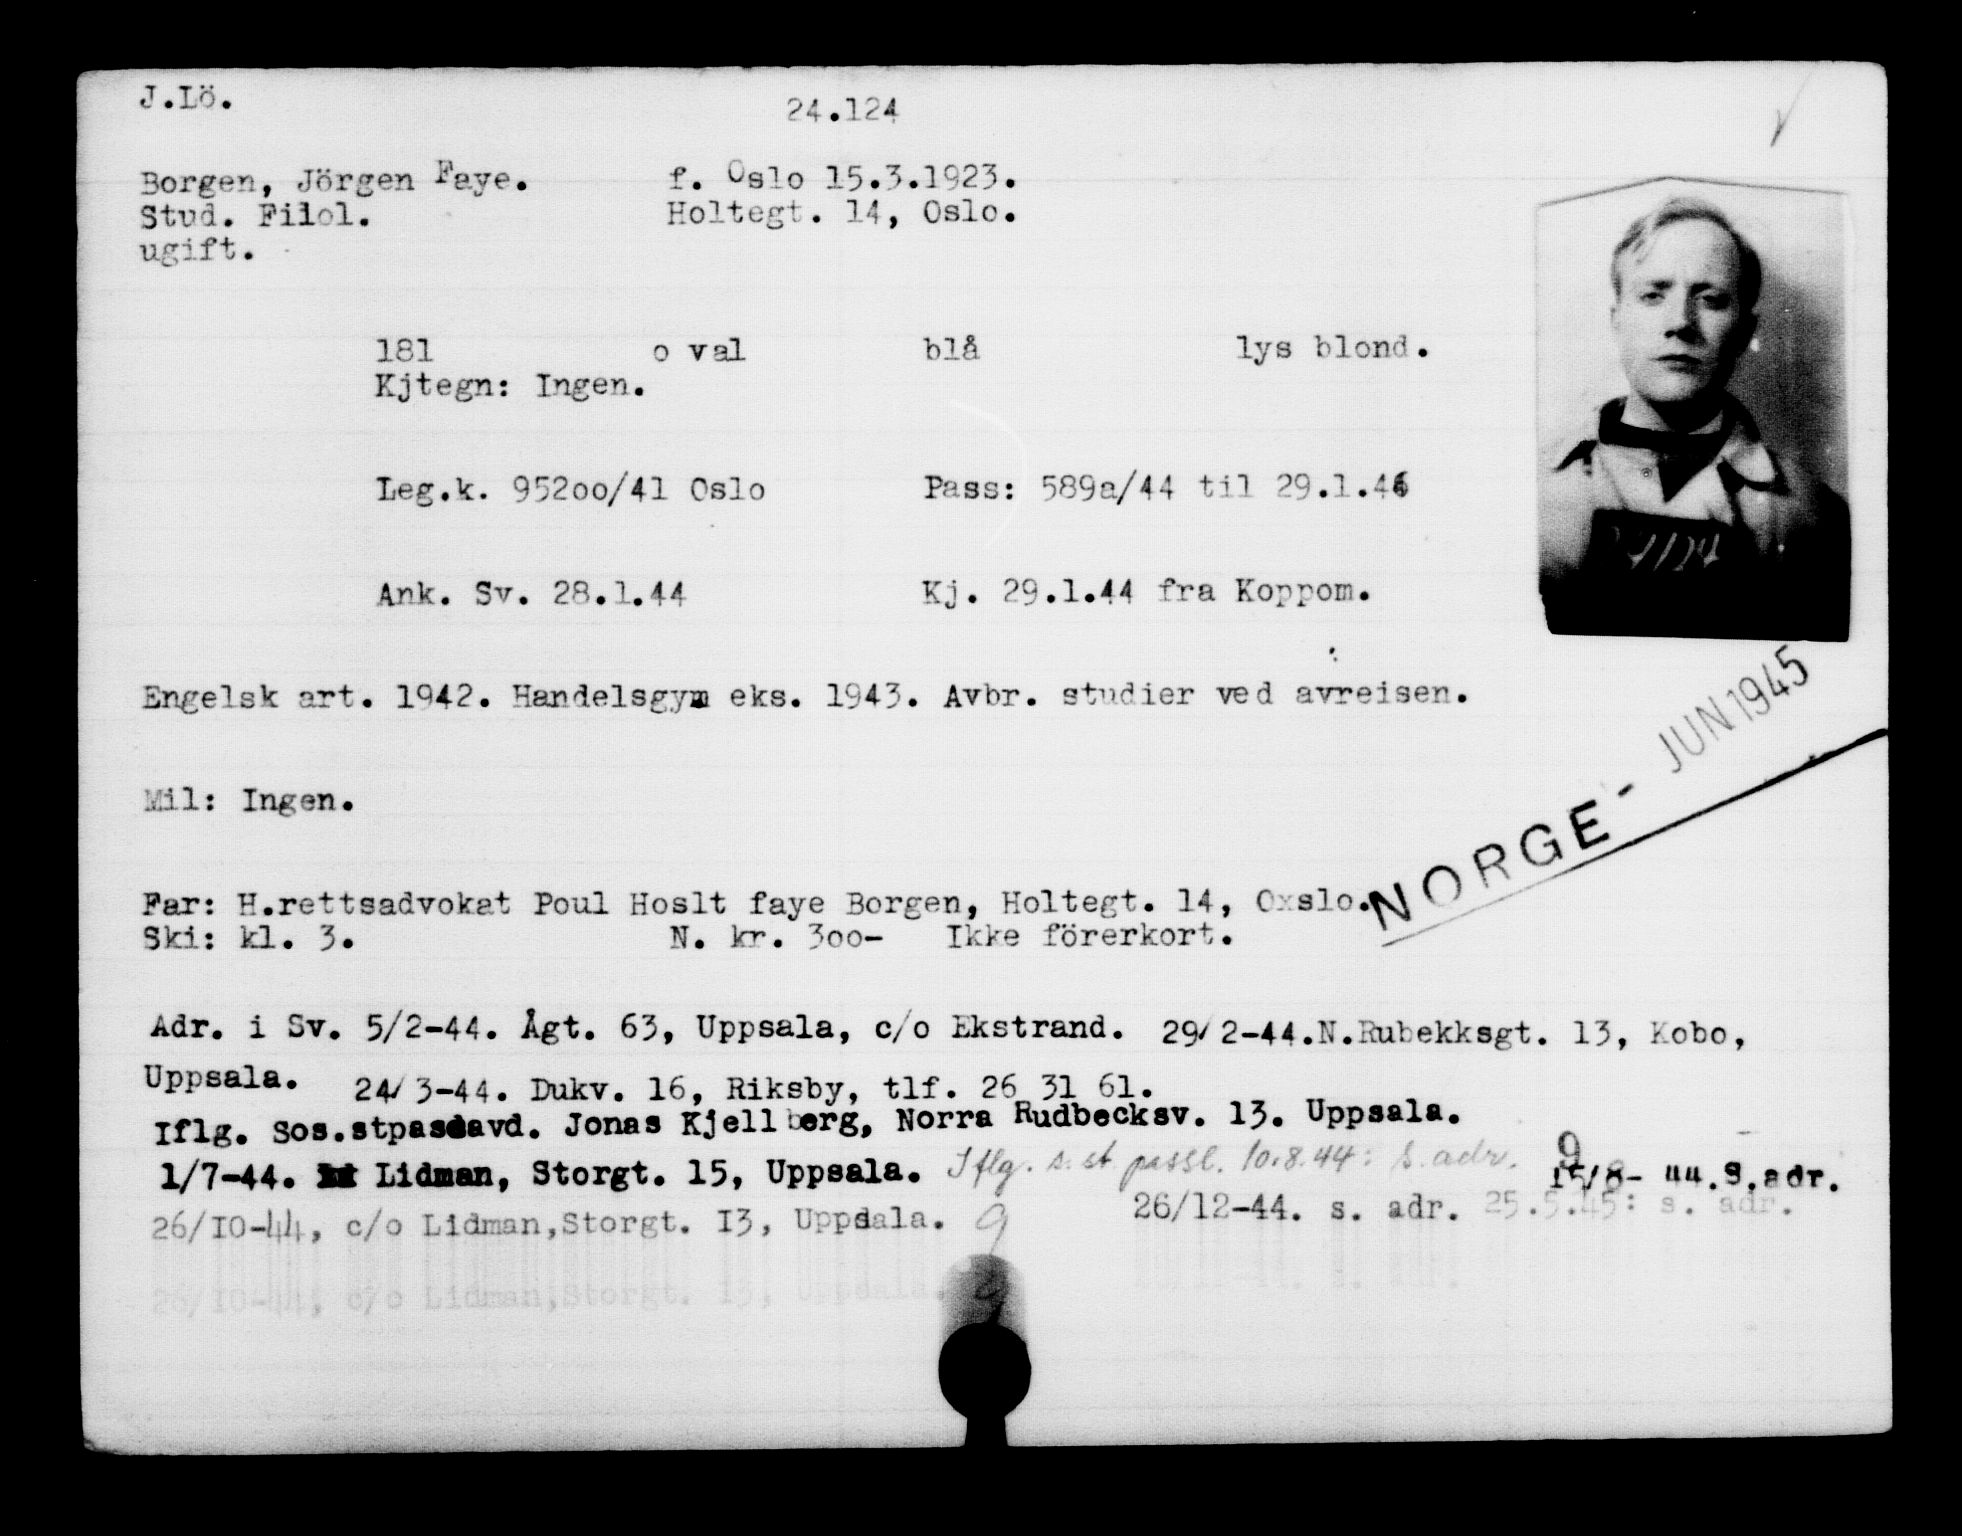 J.Lö.
24.124
Borgen, Jörgen Faye. f. Oslo 15.3.1923.
Stud. Filol. Holtegt. 14, Oslo.
ugift.
181 o val blå lys blond.
Kjtegn: Ingen.
Leg.k. 952oo/41 Oslo Pass: 589a/44 til 29.1.46
Ank. Sv. 28.1.44 Kj. 29.1.44 fra Koppom.
Engelsk art. 1942. Handelsgym eks. 1943. Avbr. studier ved avreisen.
Mil: Ingen.
NORGE - JUN 1945
Far: H.rettsadvokat Poul Hoslt faye Borgen, Holtegt. 14, Oxslo.
Ski: kl. 3. N. kr. 3oo- Ikke förerkort.
Adr. i Sv. 5/2-44. Ågt. 63, Uppsala, c/o Ekstrand. 29/2-44.N.Rubekksgt. 13, Kobo,
Uppsala. 24/3-44. Dukv. 16, Riksby, tlf. 26 31 61.
Iflg. Sos.stpassavd. Jonas Kjellberg, Norra Rudbecksv. 13. Uppsala.
1/7-44. Lidman, Storgt. 15, Uppsala. Iflg. s. st. passl. 10.8.44: s. adr. 9 15/8-44.S.adr.
26/10-44, c/o Lidman,Storgt. 13, Uppsala. 9 26/12-44. s. adr. 25.5.45: s. adr.